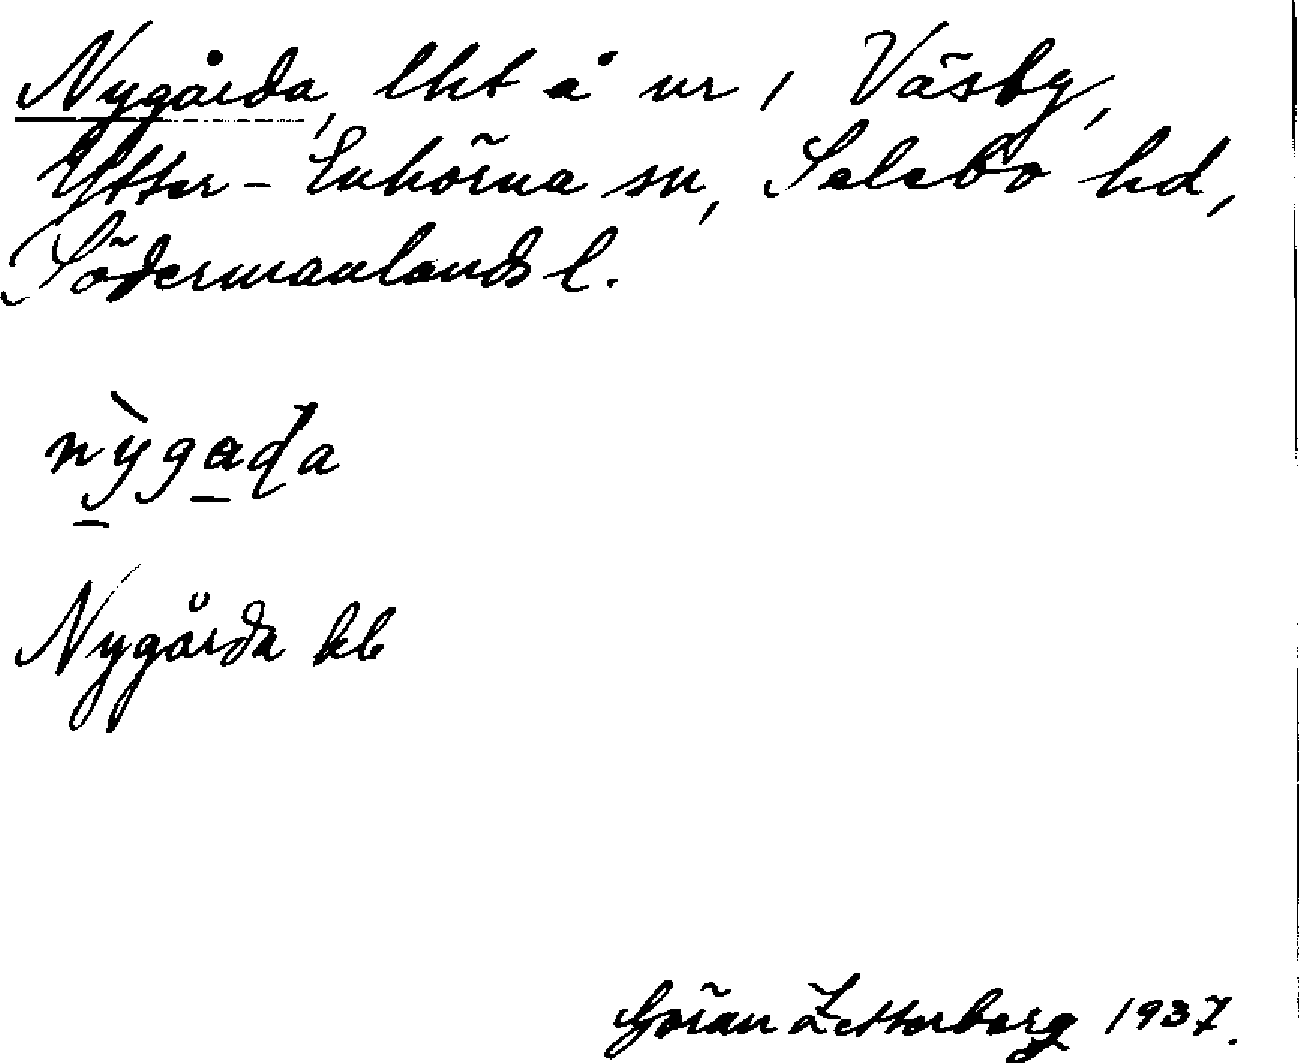 Nygårda, lht å nr 1 Väsby,
Ytter-Enhörna sn, Selebo hd,
Södermanlands l.
nỳga̠ɖa
Nygårda kb
Göran Zetterberg 1937.